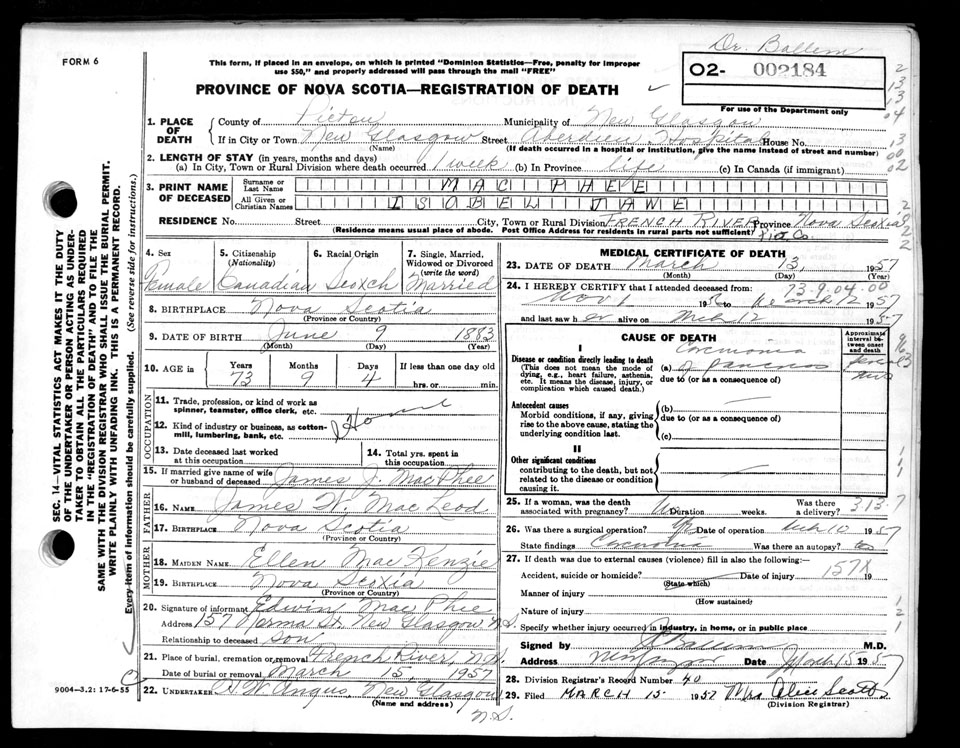 Dr. Ballem
FORM 6
This form, if placed in an envelope, on which is printed "Dominion Statistics—Free, penalty for improper
use $50," and properly addressed will pass through the mail "FREE"
02- 002184
PROVINCE OF NOVA SCOTIA—REGISTRATION OF DEATH
For use of the Department only
1. PLACE OF DEATH
County of Pictou Municipality of New Glasgow
If in City or Town New Glasgow Street Aberdeen Hospital House No.
(Name) (If death occurred in a hospital or institution, give the name instead of street and number)
2. LENGTH OF STAY (in years, months and days)
(a) In City, Town or Rural Division where death occurred 1 week (b) In Province life (c) In Canada (if immigrant)
3. PRINT NAME OF DECEASED
Surname or Last Name MAC PHEE
All Given or Christian Names ISOBEL JANE
RESIDENCE No. Street City, Town or Rural Division FRENCH RIVER Province Nova Scotia
(Residence means usual place of abode. Post Office Address for residents in rural parts not sufficient) Pict Co.
4. Sex Female
5. Citizenship (Nationality) Canadian
6. Racial Origin Scotch
7. Single, Married, Widowed or Divorced (write the word) Married
8. BIRTHPLACE Nova Scotia
(Province or Country)
9. DATE OF BIRTH June 9 1883
(Month) (Day) (Year)
10. AGE in Years 73 Months 9 Days 4 If less than one day
hrs. or min.
OCCUPATION
11. Trade, profession, or kind of work as spinner, teamster, office clerk, etc.
12. Kind of industry or business, as cotton-mill, lumbering, bank, etc.
Home
13. Date deceased last worked at this occupation
14. Total yrs. spent in this occupation
15. If married give name of wife or husband of deceased James J. MacPhee
FATHER
16. NAME James W. MacLeod
17. BIRTHPLACE Nova Scotia
(Province or Country)
MOTHER
18. MAIDEN NAME Ellen MacKenzie
19. BIRTHPLACE Nova Scotia
(Province or Country)
20. Signature of informant Edwin MacPhee
Address 157 Norma St. New Glasgow N.S.
Relationship to deceased son
21. Place of burial, cremation or removal French River, N.S.
Date of burial or removal March 15, 1957
22. UNDERTAKER H W Angus, New Glasgow
(Name and address) N.S.
MEDICAL CERTIFICATE OF DEATH
23. DATE OF DEATH March 13, 1957
(Month) (Day) (Year)
24. I HEREBY CERTIFY that I attended deceased from: 73.9.04.00
Nov 1 1956 to March 12 1957
and last saw her alive on Mch 12 1957
CAUSE OF DEATH
Approximate interval between onset and death
I
Disease or condition directly leading to death
(This does not mean the mode of dying, e.g., heart failure, asthenia, etc. It means the disease, injury, or complication which caused death.)
(a)
due to (or as a consequence of)
Antecedent causes
Morbid conditions, if any, giving rise to the above cause, stating the underlying condition last.
(b)
due to (or as a consequence of)
(c)
II
Other significant conditions
contributing to the death, but not related to the disease or condition causing it.
25. If a woman, was the death associated with pregnancy? Duration weeks. Was there a delivery? 313-7
26. Was there a surgical operation? Date of operation Mch 10 1957
State findings Was there an autopsy?
27. If death was due to external causes (violence) fill in also the following:—
Accident, suicide or homicide? Date of injury 157X 19
(State which)
Manner of injury
(How sustained)
Nature of injury
Specify whether injury occurred in industry, in home, or in public place
Signed by Ballem M.D.
Address New Glasgow Date March 15 1957
28. Division Registrar's Record Number 40
29. Filed MARCH 15 1957 Mrs Alice Scott
(Division Registrar)
SEC. 14—VITAL STATISTICS ACT MAKES IT THE DUTY
OF THE UNDERTAKER OR PERSON ACTING AS UNDERTAKER TO OBTAIN ALL THE PARTICULARS REQUIRED
IN THE "REGISTRATION OF DEATH" AND TO FILE THE
SAME WITH THE DIVISION REGISTRAR WHO SHALL ISSUE THE BURIAL PERMIT.
WRITE PLAINLY WITH UNFADING INK. THIS IS A PERMANENT RECORD.
Every item of information should be carefully supplied. (See reverse side for instructions.)
9004—3.2: 17-6-55